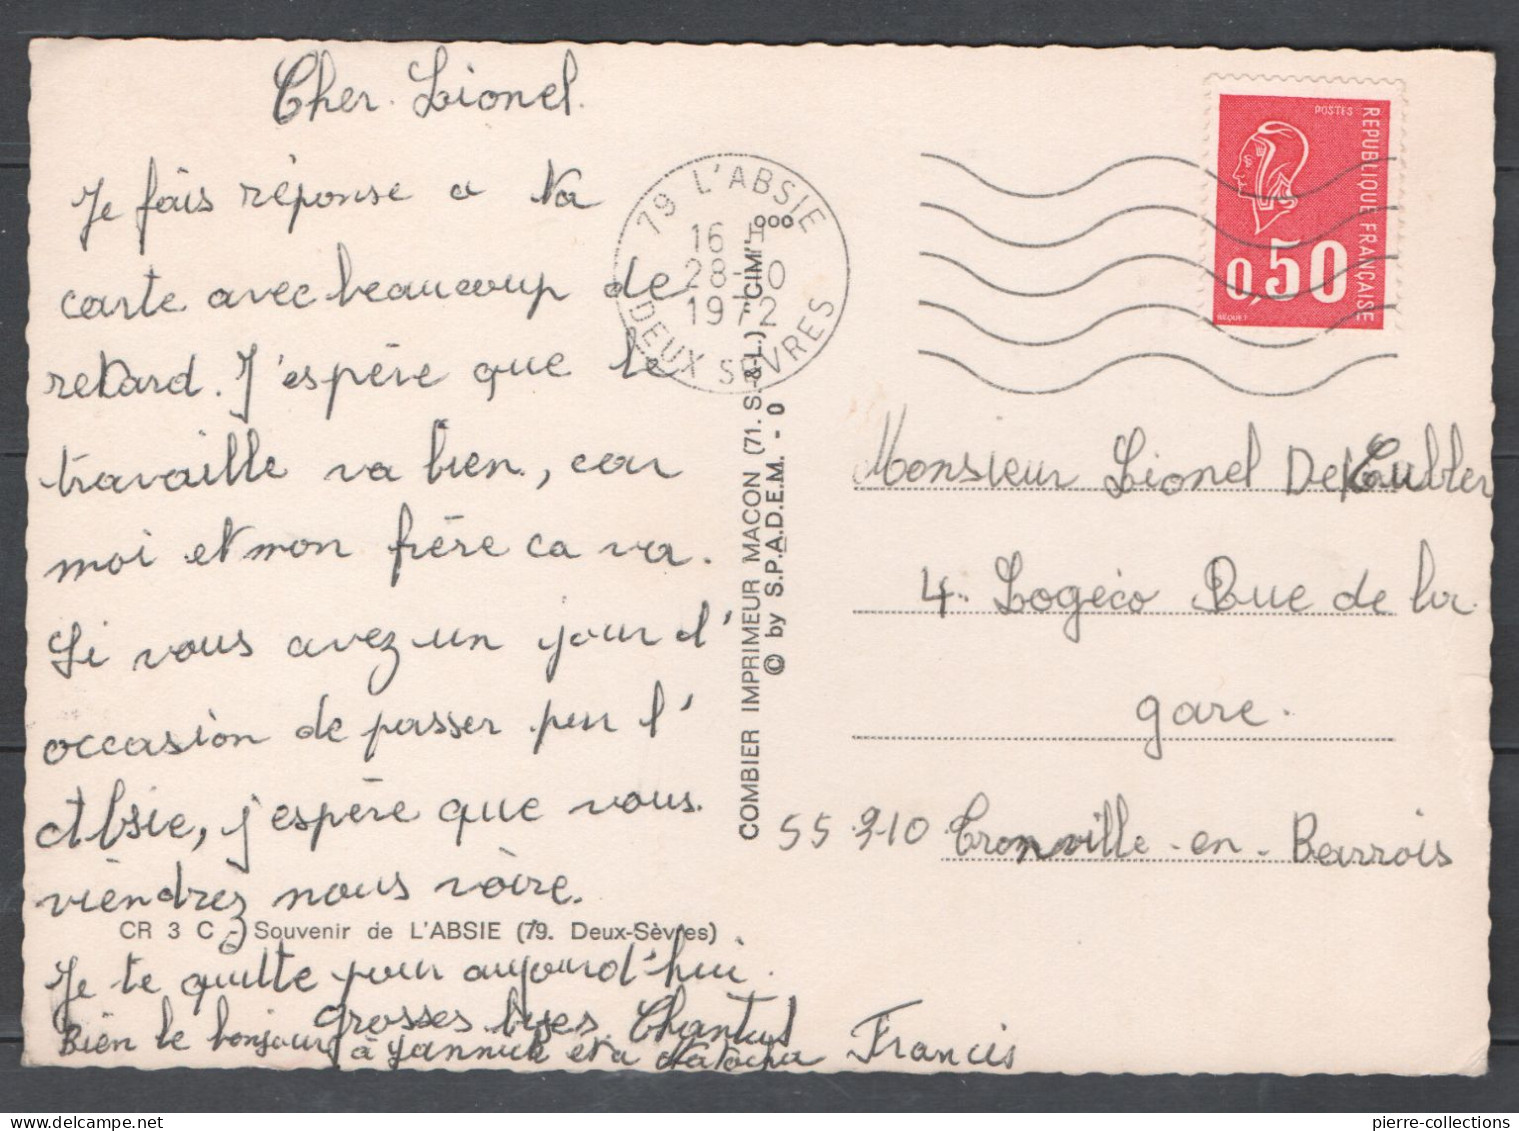 Cher Lionel.
Je fais réponse a ta
carte avec beaucoup de
retard. J'espère que le
travaille va bien, car
moi et mon frère ca va.
Si vous avez un jour l'
occasion de passer par l'
Absie, j'espère que vous
viendrez nous voire.
CR 3 C - Souvenir de L'ABSIE (79. Deux-Sèvres)
Je te quitte pour aujourd'hui.
grosses bises. Chantal Francis
Bien le bonjour à Yannick et a Natacha
79 L'ABSIE
16 H
28-10
1972
DEUX SEVRES
COMBIER IMPRIMEUR MACON (71. S.-&-L.) "CIM"
© by S.P.A.D.E.M. - 0
POSTES
REPUBLIQUE FRANÇAISE
0,50
BEQUET
Monsieur Lionel
4. Logéco Rue de la
gare.
55 310 Tronville-en-Barrois
pierre-collections